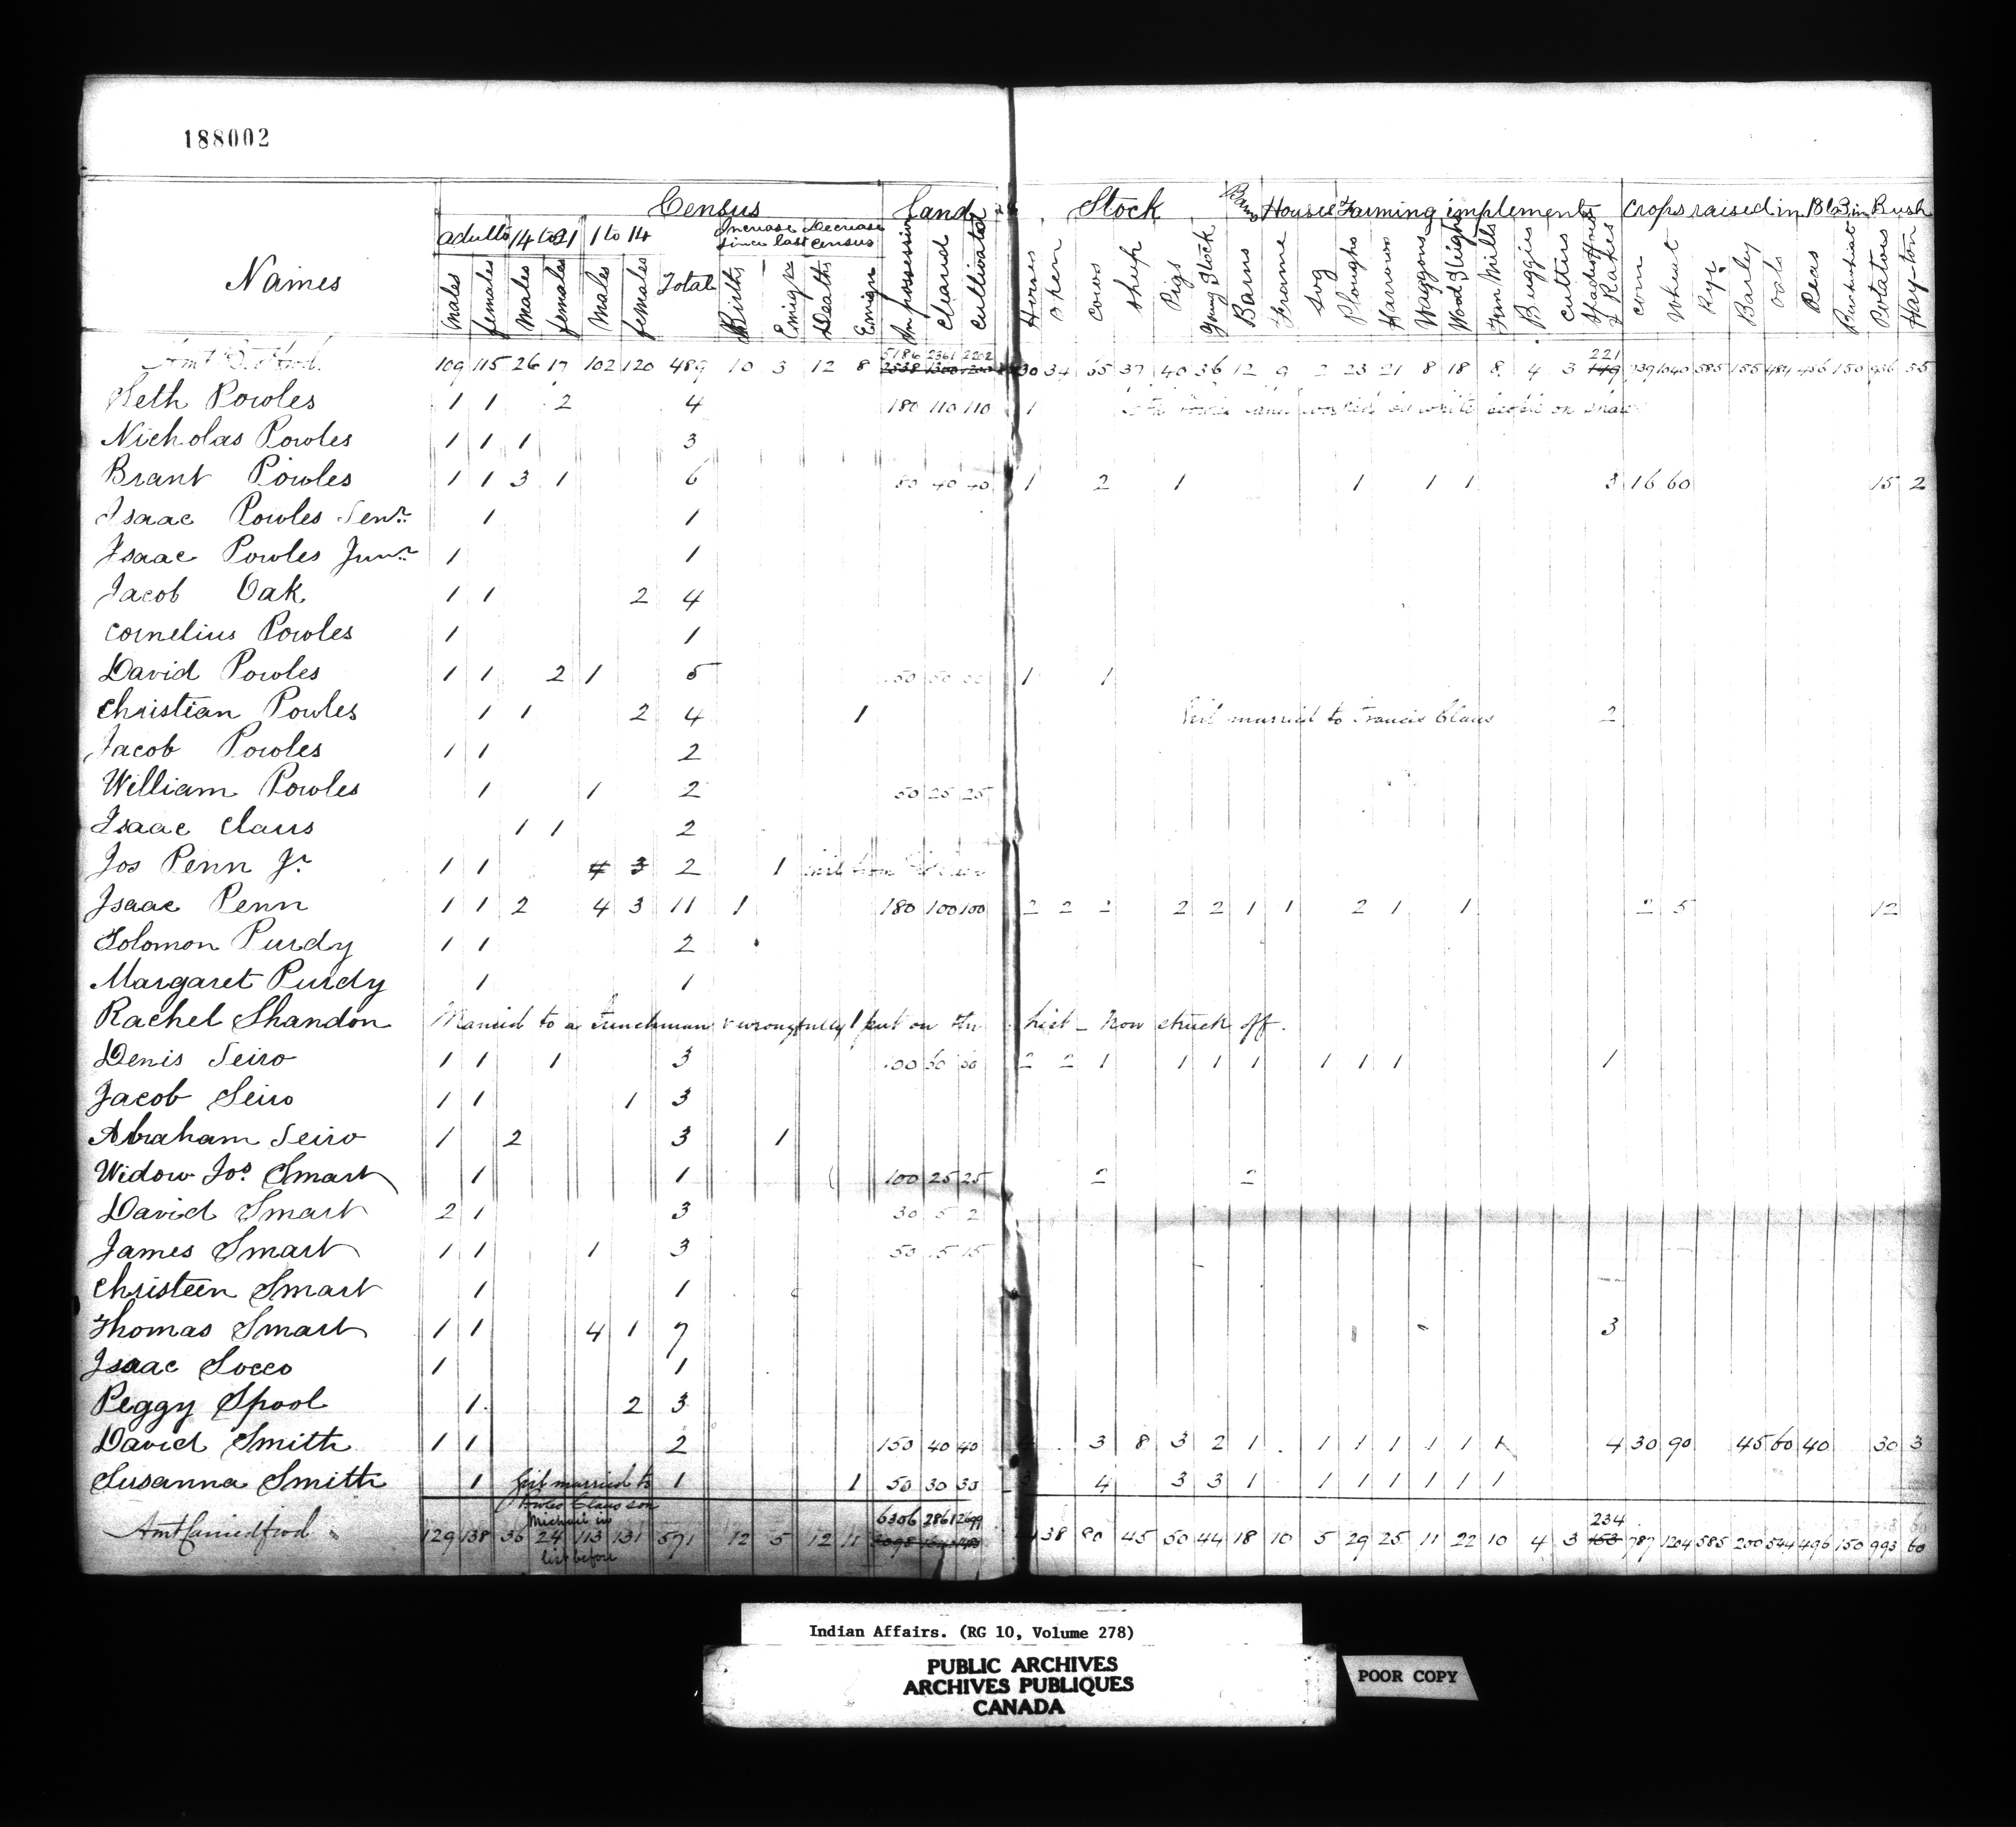 188002
Census Land Stock Barns Houses Farming implements Crops raised in 1863 in Bush
adults 14 to 21 1 to 14 Increase Decrease
since last census
Names males females Males females Males females Total Births Emigrs Deaths Emign In possession cleared cultivated Horses Oxen Cows Sheep Pigs Young Stock Barns Frame Log Ploughs Harrows Waggons Wood Sleighs Fan Mills Buggies Cutters & Rakes corn Wheat Rye Barley oats Peas Buckwheat Potatoes Hay-ton
5186 2361 2202 221
109 115 26 17 102 120 489 10 3 12 8 2538 1300 1200 30 34 65 37 40 36 12 9 2 23 21 8 18 8 4 3 149 739 1040 585 155 484 456 150 936 55
Seth Powles 1 1 2 4 180 110 110 1 land worked by white people on shares
Nicholas Powles 1 1 1 3
Brant Powles 1 1 3 1 6 80 40 40 1 2 1 1 1 1 3 16 60 15 2
Isaac Powles Senr. 1 1
Isaac Powles Junr. 1 1
Jacob Oak 1 1 2 4
Cornelius Powles 1 1
David Powles 1 1 2 1 5 50 50 1 1
Christian Powles 1 1 2 4 1 Girl married to Francis Claus 2
Jacob Powles 1 1 2
William Powles 1 1 2 50 25 25
Isaac Claus 1 1 2
Jos Penn Jr 1 1 4 3 2 1
Isaac Penn 1 1 2 4 3 11 1 180 100 100 2 2 2 2 2 1 1 2 1 1 2 5 12
Solomon Purdy 1 1 2
Margaret Purdy 1 1
Rachel Shandon Married to a Frenchman & wrongfully put on the list - now struck off.
Denis Seiro 1 1 1 3 100 2 2 1 1 1 1 1 1 1 1
Jacob Seiro 1 1 1 3
Abraham Seiro 1 2 3 1
Widow Jos. Smart 1 1 100 25 25 2 2
David Smart 2 1 3 30 5 2
James Smart 1 1 1 3 50 15 15
Christeen Smart 1 1
Thomas Smart 1 1 4 1 7 3
Isaac Socco 1 1
Peggy Spool 1 2 3
David Smith 1 1 2 150 40 40 3 8 3 2 1 1 1 1 1 1 1 4 30 90 45 60 40 30 3
Susanna Smith 1 Girl married to 1 1 50 30 30 3 4 3 3 1 1 1 1 1 1 1
Claus son
Michael in 6306 2861 2699 234
Amt Carried forwd 129 138 36 24 113 131 571 12 5 12 11 38 80 45 50 44 18 10 5 29 25 11 22 10 4 3 153 787 1204 585 200 544 496 150 993 60
list before
Indian Affairs. (RG 10, Volume 278)
PUBLIC ARCHIVES
ARCHIVES PUBLIQUES
CANADA
POOR COPY